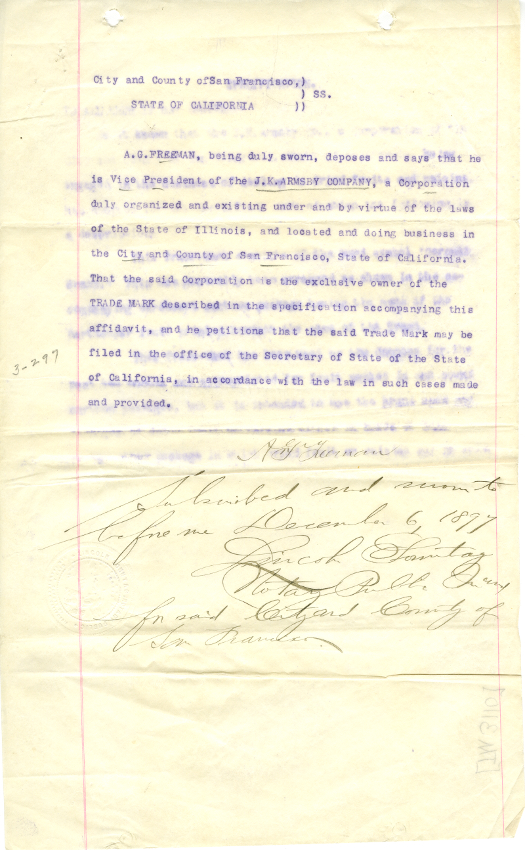 City and County ofSan Francisco,)
) SS.
STATE OF CALIFORNIA ))
A.G.FREEMAN, being duly sworn, deposes and says that he
is Vice President of the J.K.ARMSBY COMPANY, a Corporation
duly organized and existing under and by virtue of the laws
of the State of Illinois, and located and doing business in
the City and County of San Francisco, State of California.
That the said Corporation is the exclusive owner of the
TRADE MARK described in the specification accompanying this
affidavit, and he petitions that the said Trade Mark may be
filed in the office of the Secretary of State of the State
of California, in accordance with the law in such cases made
and provided.
3-297
A.G. Freeman
Subscribed and sworn to
before me December 6, 1897
Lincoln Sonntag
Notary Public
In said City and County of
San Francisco.